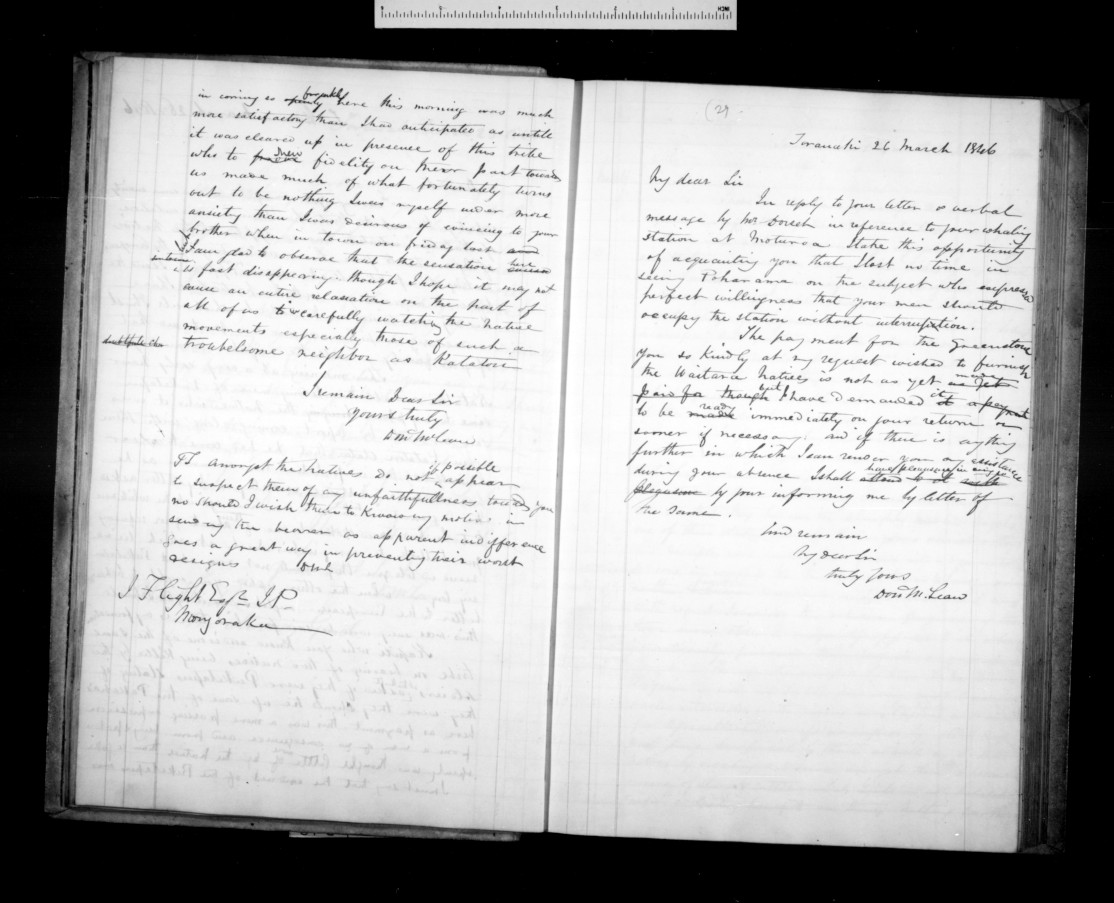 in coming so openly frankly here this morning was much
more satisfactory than I had anticipated as untill
it was cleared up in presence of this tribe
who to shew fidelity on their part towards
us made much of what fortunately turns
out to be nothing I was myself under more
anxiety than I was desirous of evincing to your
brother when in town on friday last and
I am glad to observe that the sensation here
is fast disappearing though I hope it may not
cause an entire relaxation on the part of
all of us in carefully watching the native
movements especially those of such a
doubtfull
troubelsome neighbor as Katatori
I remain Dear Sir
yours truly
Don. McLean
PS amongst the natives do not if possible appear
to suspect them of any unfaithfullness towards you
no should I wish them to know my motive in
sending the bearer as apparent indifference
goes a great way in preventing their worst
designs DMcL
J Flight Esqre JP
Mongoraka
(29)
Taranaki 26 March 1846
My dear Sir
In reply to your letter & verbal
message by Mr Dorset in reference to your whaling
station at Moturoa I take this opportunity
of acquainting you that I lost no time in
seeing Poharama on the subject who expressed
perfect willingness that your men should
occupy the station without interruption.
The payment for the Greenstone
you so kindly at my request wished to furnish
the Waitara natives is not as yet made
paid for though but I have demanded it
to be made ready immediately on your return or
sooner if necessary. and if there is anything
further in which I can render you any assistance
during your absence I shall attend to it with have pleasure in
pleasure by your informing me by letter of
the same.
and remain
My dear Sir
truly yours
Don. McLean